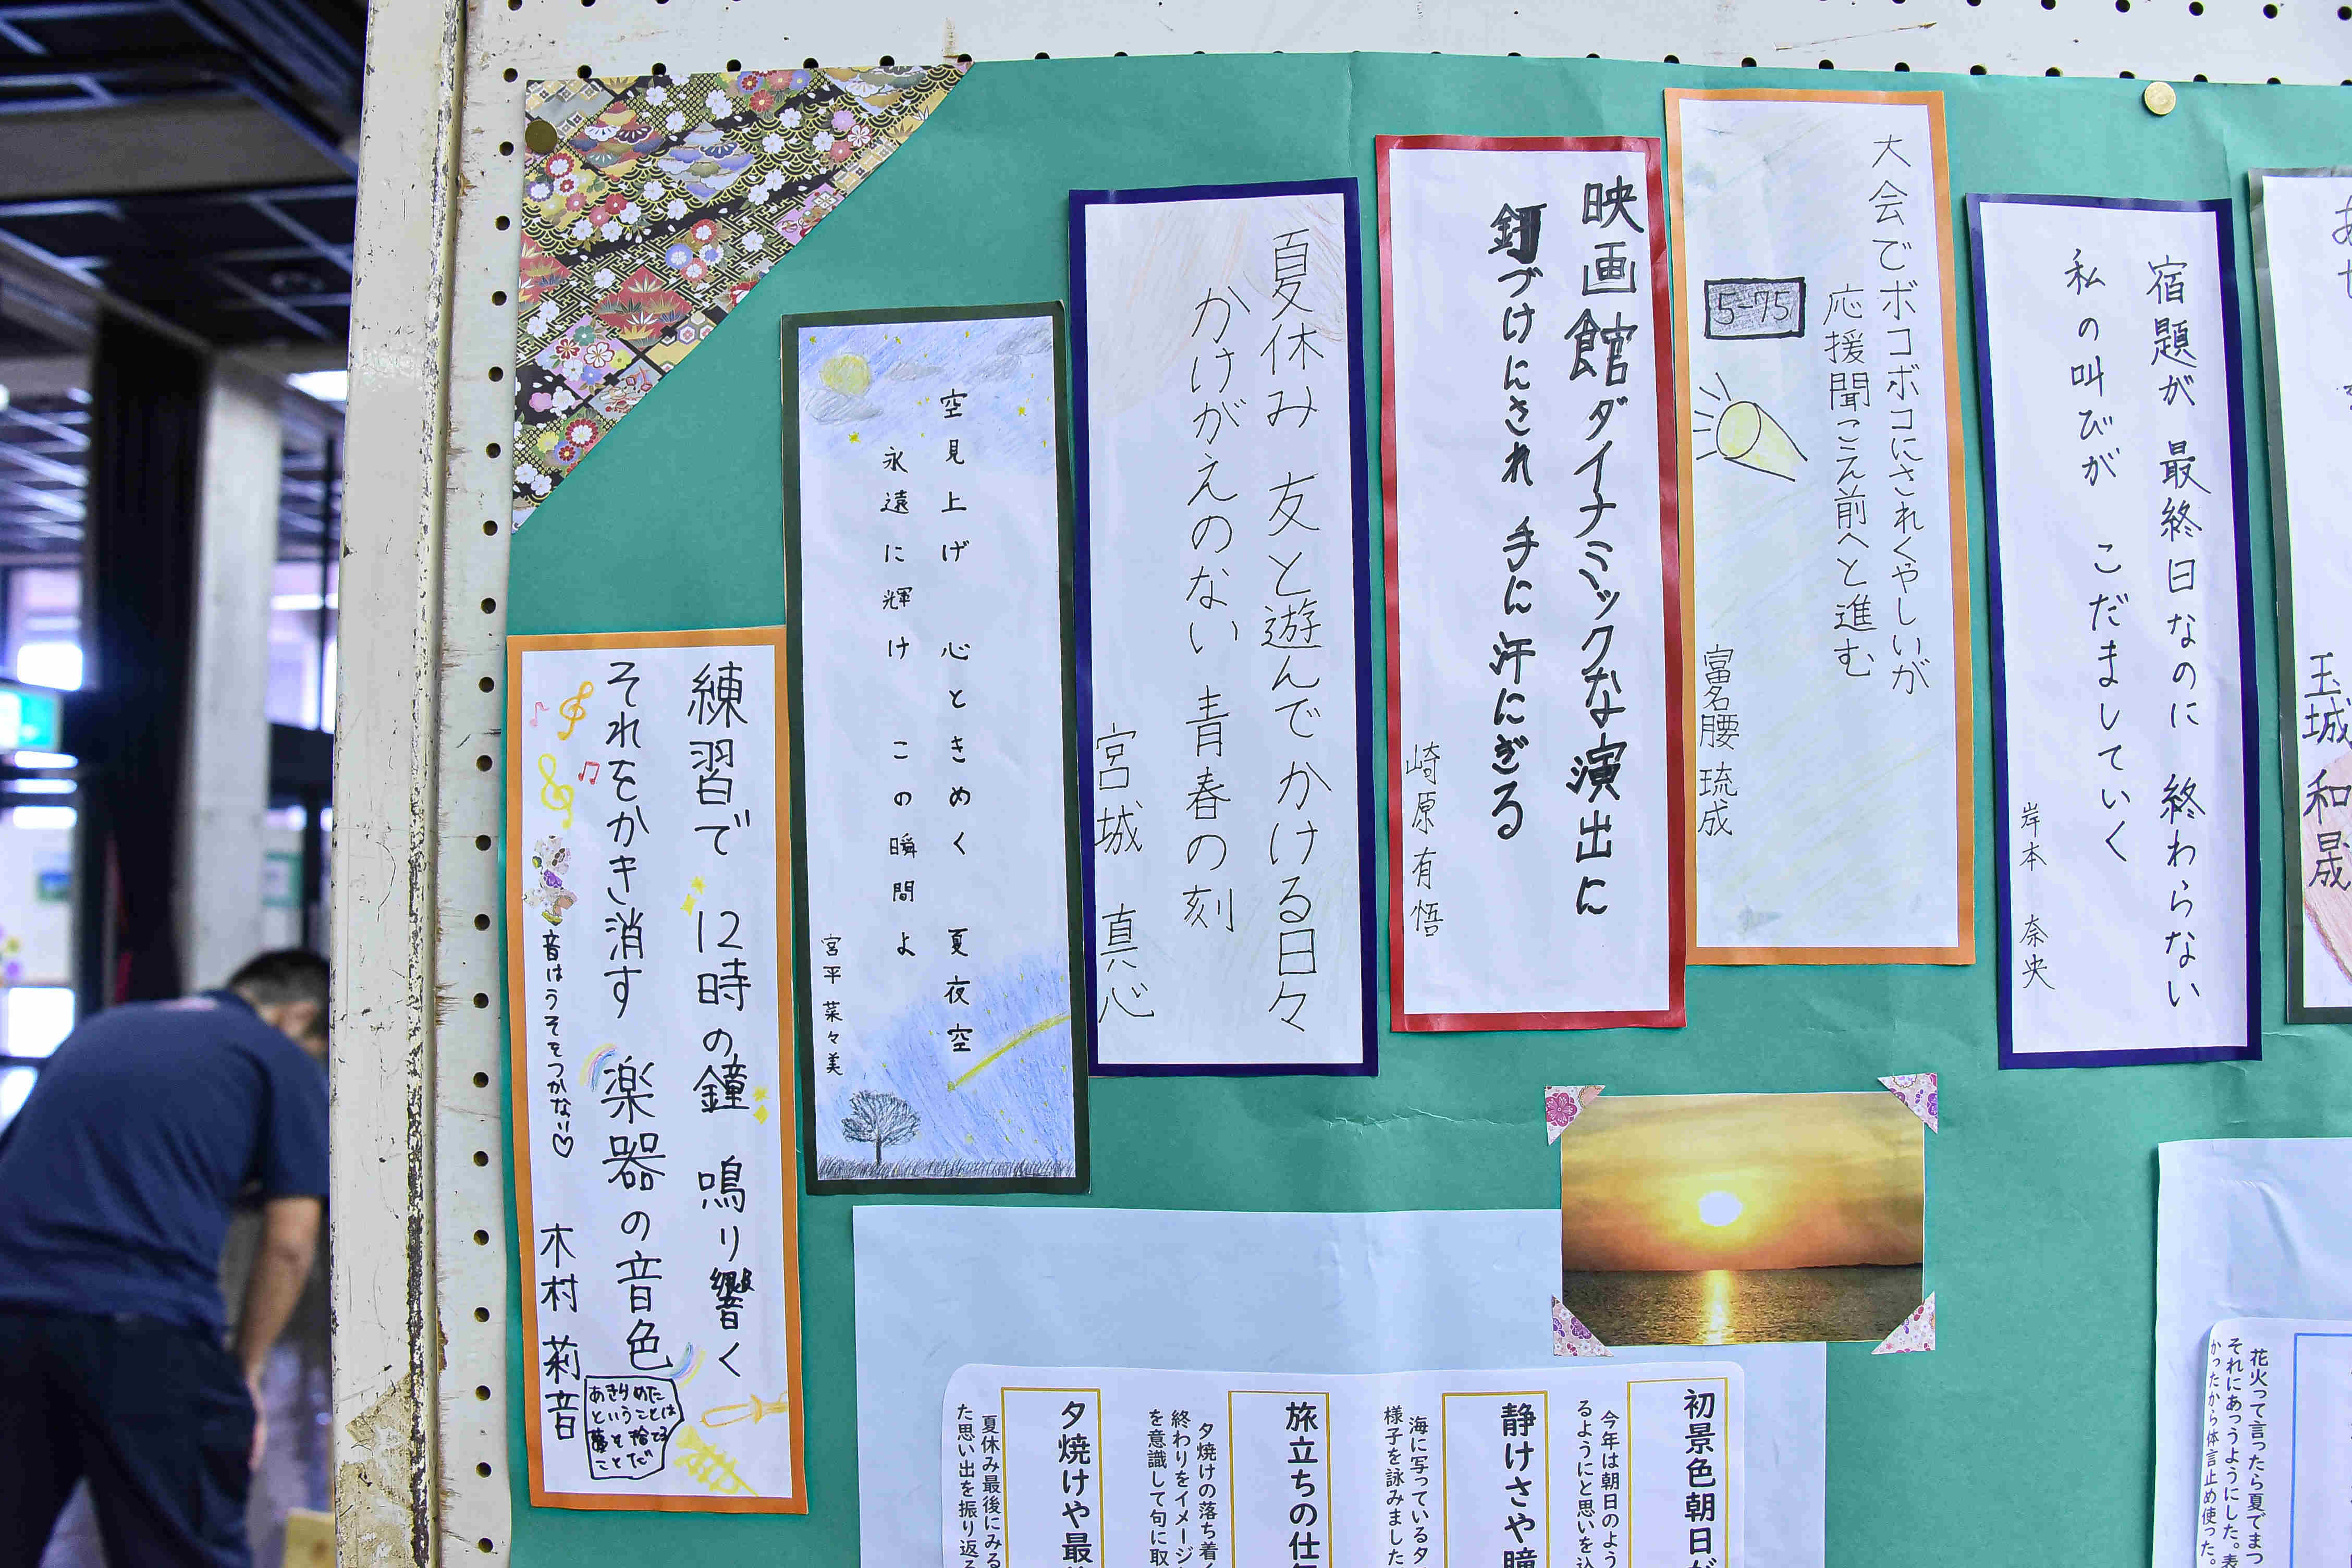 玉城 和晟
宿題が 最終日なのに 終わらない
私の叫びが こだましていく
岸本 奈央
大会でボコボコにされくやしいが
応援聞こえ前へと進む
5-75
富名腰 琉成
映画館ダイナミックな演出に
釘づけにされ 手に汗にぎる
崎原 有悟
夏休み 友と遊んでかける日々
かけがえのない 青春の刻
宮城 真心
空見上げ 心ときめく 夏夜空
永遠に輝け この瞬間よ
宮平 菜々美
練習で 12時の鐘 鳴り響く
それをかき消す 楽器の音色
音はうそをつかない♡
木村 莉音
あきらめた
ということは
夢を捨てる
ことだ
花火って言ったら夏でま
それにあうようにした。表
かったから体言止め使った。
初景色朝日が
今年は朝日のよう
るようにと思いを込
静けさや瞳
海に写っている夕
様子を詠みました
旅立ちの仕
夕焼けの落ち着
終わりをイメージ
を意識して句に取
夕焼けや最
夏休み最後にみる
た思い出を振り返る